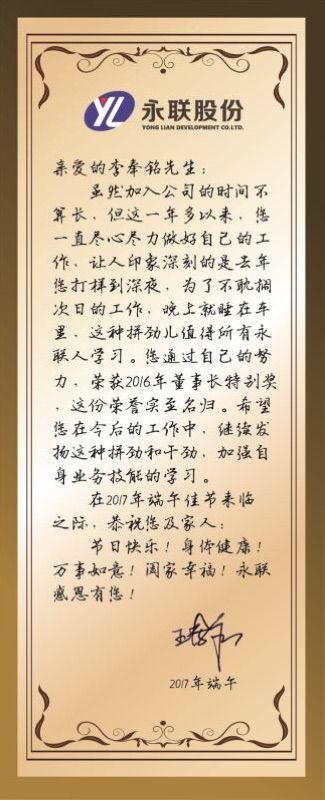 YL
永联股份
YONG LIAN DEVELOPMENT CO.LTD.
亲爱的李奉铭先生：
虽然加入公司的时间不
算长，但这一年多以来，您
一直尽心尽力做好自己的工
作，让人印象深刻的是去年
您打样到深夜，为了不耽搁
次日的工作，晚上就睡在车
里，这种拼劲儿值得所有永
联人学习。您通过自己的努
力，荣获2016年董事长特别奖
，这份荣誉实至名归。希望
您在今后的工作中，继续发
扬这种拼劲和干劲，加强自
身业务技能的学习。
在2017年端午佳节来临
之际，恭祝您及家人：
节日快乐！身体健康！
万事如意！阖家幸福！永联
感恩有您！
2017年端午